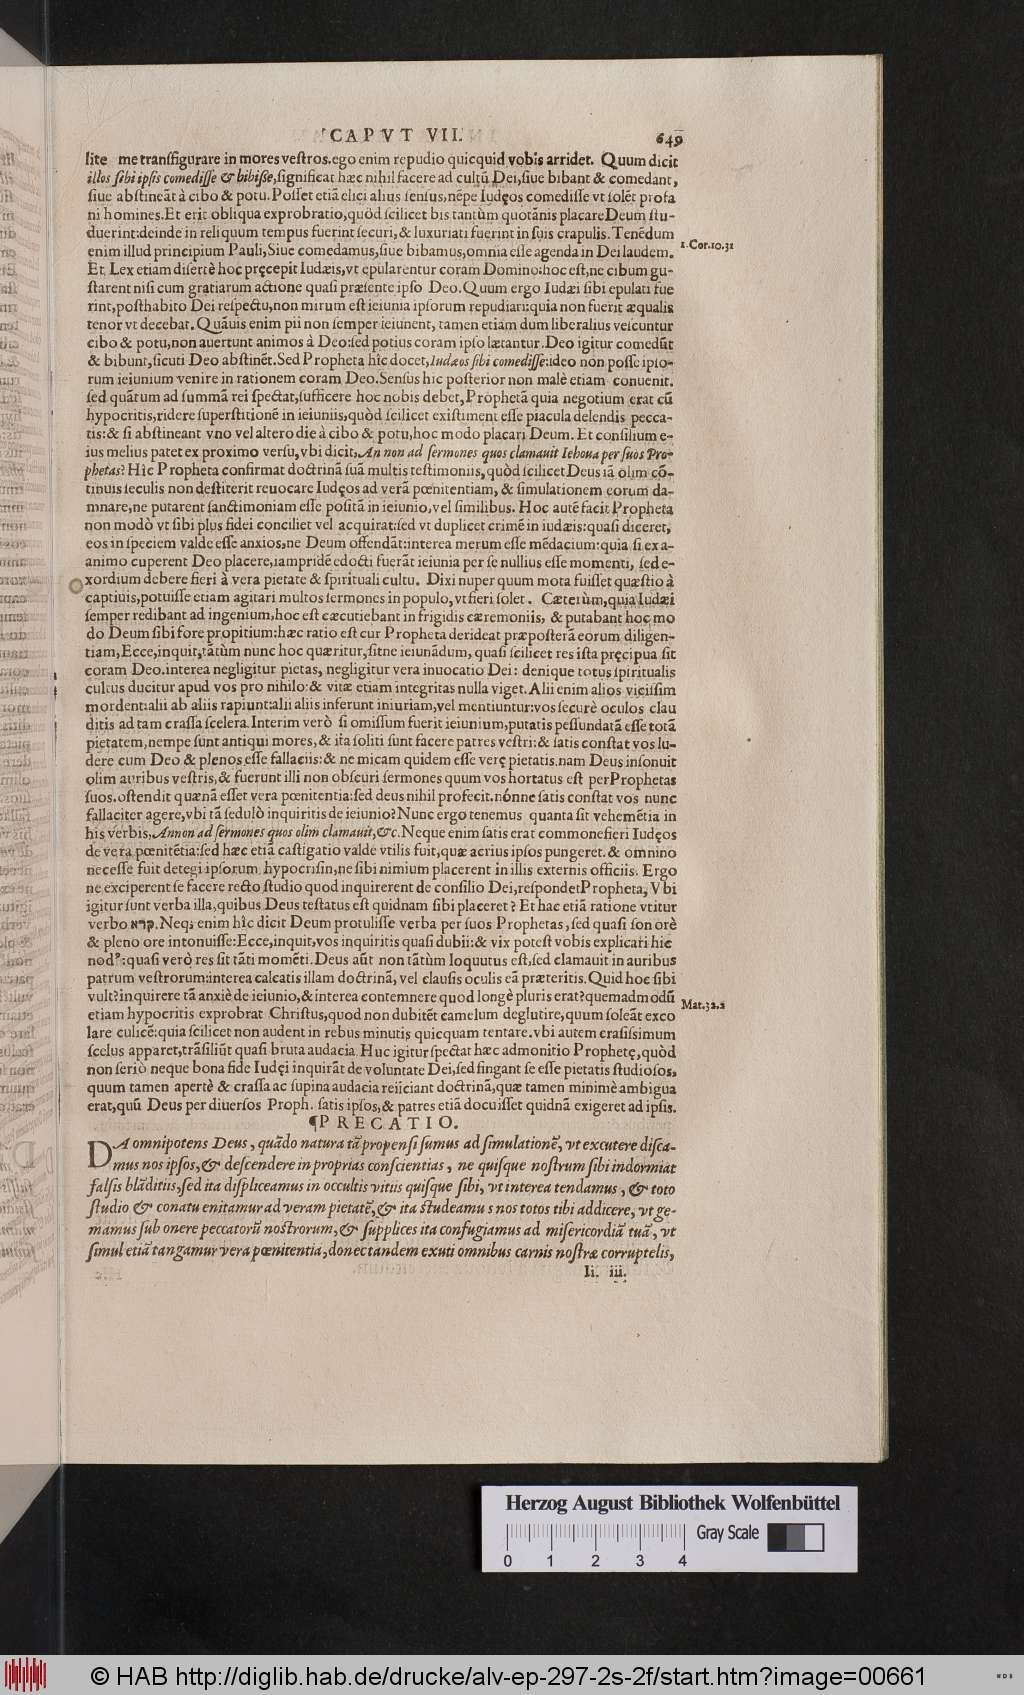 CAPVT VII. 649
lite me transfigurare in mores vestros. ego enim repudio quicquid vobis arridet. Quum dicit
illos sibi ipsis comedisse & bibisse, significat hæc nihil facere ad cultũ Dei, siue bibant & comedant,
siue abstineãt à cibo & potu. Posset etiã elici alius sensus, nẽpe Iudęos comedisse vt solẽt profa
ni homines. Et erit obliqua exprobratio, quòd scilicet bis tantùm quotãnis placare Deum stu-
duerint: deinde in reliquum tempus fuerint securi, & luxuriati fuerint in suis crapulis. Tenẽdum
enim illud principium Pauli, Siue comedamus, siue bibamus, omnia esse agenda in Dei laudem.
1. Cor. 10. 31
Et Lex etiam disertè hoc pręcepit Iudæis, vt epularentur coram Domino: hoc est, ne cibum gu-
starent nisi cum gratiarum actione quasi præsente ipso Deo. Quum ergo Iudæi sibi epulati fue
rint, posthabito Dei respectu, non mirum est ieiunia ipsorum repudiari: quia non fuerit æqualis
tenor vt decebat. Quãuis enim pii non semper ieiunent, tamen etiam dum liberalius vescuntur
cibo & potu, non auertunt animos à Deo: sed potius coram ipso lætantur. Deo igitur comedũt
& bibunt, sicuti Deo abstinẽt. Sed Propheta hîc docet, Iudæos sibi comedisse: ideo non posse ipso-
rum ieiunium venire in rationem coram Deo. Sensus hic posterior non malè etiam conuenit.
sed quãtum ad summã rei spectat, sufficere hoc nobis debet, Prophetã quia negotium erat cũ
hypocritis, ridere superstitionẽ in ieiuniis, quòd scilicet existiment esse piacula delendis pecca-
tis: & si abstineant vno vel altero die à cibo & potu, hoc modo placari Deum. Et consilium e-
ius melius patet ex proximo versu, vbi dicit, An non ad sermones quos clamauit Iehoua per suos Pro-
phetas? Hîc Propheta confirmat doctrinã suã multis testimoniis, quòd scilicet Deus iã olim cõ-
tinuis seculis non destiterit reuocare Iudęos ad verã pœnitentiam, & simulationem eorum da-
mnare, ne putarent sanctimoniam esse positã in ieiunio, vel similibus. Hoc autẽ facit Propheta
non modò vt sibi plus fidei conciliet vel acquirat: sed vt duplicet crimẽ in iudæis: quasi diceret,
eos in speciem valde esse anxios, ne Deum offendãt: interea merum esse mẽdacium: quia si ex a-
animo cuperent Deo placere, iampridẽ edocti fuerãt ieiunia per se nullius esse momenti, sed e-
xordium debere fieri à vera pietate & spirituali cultu. Dixi nuper quum mota fuisset quæstio à
captiuis, potuisse etiam agitari multos sermones in populo, vt fieri solet. Cæterùm, quia Iudæi
semper redibant ad ingenium, hoc est cæcutiebant in frigidis cæremoniis, & putabant hoc mo
do Deum sibi fore propitium: hæc ratio est cur Propheta derideat præposterã eorum diligen-
tiam, Ecce, inquit, tãtùm nunc hoc quæritur, sitne ieiunãdum, quasi scilicet res ista pręcipua sit
coram Deo. interea negligitur pietas, negligitur vera inuocatio Dei: denique totus spiritualis
cultus ducitur apud vos pro nihilo: & vitæ etiam integritas nulla viget. Alii enim alios vicissim
mordent: alii ab aliis rapiunt: alii aliis inferunt iniuriam, vel mentiuntur: vos securè oculos clau
ditis ad tam crassa scelera. Interim verò si omissum fuerit ieiunium, putatis pessundatã esse totã
pietatem, nempe sunt antiqui mores, & ita soliti sunt facere patres vestri: & satis constat vos lu-
dere cum Deo & plenos esse fallaciis: & ne micam quidem esse verę pietatis. nam Deus insonuit
olim auribus vestris, & fuerunt illi non obscuri sermones quum vos hortatus est per Prophetas
suos. ostendit quænã esset vera pœnitentia: sed deus nihil profecit. nónne satis constat vos nunc
fallaciter agere, vbi tã sedulò inquiritis de ieiunio? Nunc ergo tenemus quanta sit vehemẽtia in
his verbis, An non ad sermones quos olim clamauit, &c. Neque enim satis erat commonefieri Iudęos
de vera pœnitẽtia: sed hæc etiã castigatio valde vtilis fuit, quæ acrius ipsos pungeret. & omnino
necesse fuit detegi ipsorum hypocrisin, ne sibi nimium placerent in illis externis officiis. Ergo
ne exciperent se facere recto studio quod inquirerent de consilio Dei, respondet Propheta, Vbi
igitur sunt verba illa, quibus Deus testatus est quidnam sibi placeret? Et hac etiã ratione vtitur
verbo קרא. Neq; enim hîc dicit Deum protulisse verba per suos Prophetas, sed quasi sonorè
& pleno ore intonuisse: Ecce, inquit, vos inquiritis quasi dubii: & vix potest vobis explicari hic
nodꝰ: quasi verò res sit tãti momẽti. Deus aũt non tãtùm loquutus est, sed clamauit in auribus
patrum vestrorum: interea calcatis illam doctrinã, vel clausis oculis eã præteritis. Quid hoc sibi
vult? inquirere tã anxiè de ieiunio, & interea contemnere quod longè pluris erat? quemadmodũ
Mat. 32. 2
etiam hypocritis exprobrat Christus, quod non dubitẽt camelum deglutire, quum soleãt exco
lare culicẽ: quia scilicet non audent in rebus minutis quicquam tentare. vbi autem crassissimum
scelus apparet, trãsiliũt quasi bruta audacia. Huc igitur spectat hæc admonitio Prophetę, quòd
non seriò neque bona fide Iudęi inquirãt de voluntate Dei, sed fingant se esse pietatis studiosos,
quum tamen apertè & crassa ac supina audacia reiiciant doctrinã, quæ tamen minimè ambigua
erat, quũ Deus per diuersos Proph. satis ipsos, & patres etiã docuisset quidnã exigeret ad ipsis.
¶PRECATIO.
DA omnipotens Deus, quãdo natura tã propensi sumus ad simulationẽ, vt excutere disca-
mus nos ipsos, & descendere in proprias conscientias, ne quisque nostrum sibi indormiat
falsis blãditiis, sed ita displiceamus in occultis vitiis quisque sibi, vt interea tendamus, & toto
studio & conatu enitamur ad veram pietatẽ, & ita studeamus nos totos tibi addicere, vt ge-
mamus sub onere peccatorũ nostrorum, & supplices ita confugiamus ad misericordiã tuã, vt
simul etiã tangamur vera pœnitentia, donec tandem exuti omnibus carnis nostræ corruptelis,
Ii. iii.
Herzog August Bibliothek Wolfenbüttel
0 1 2 3 4 Gray Scale
© HAB http://diglib.hab.de/drucke/alv-ep-297-2s-2f/start.htm?image=00661